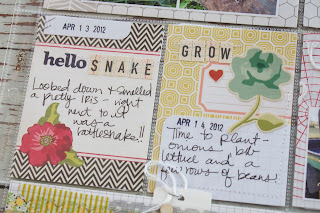 APR 13 2012
hello SNAKE
Looked down & smelled
a pretty Iris - right
next to it
was a
rattlesnake!!
GROW
APR 14 2012
Time to plant-
onions
lettuce and a
few rows of beans!